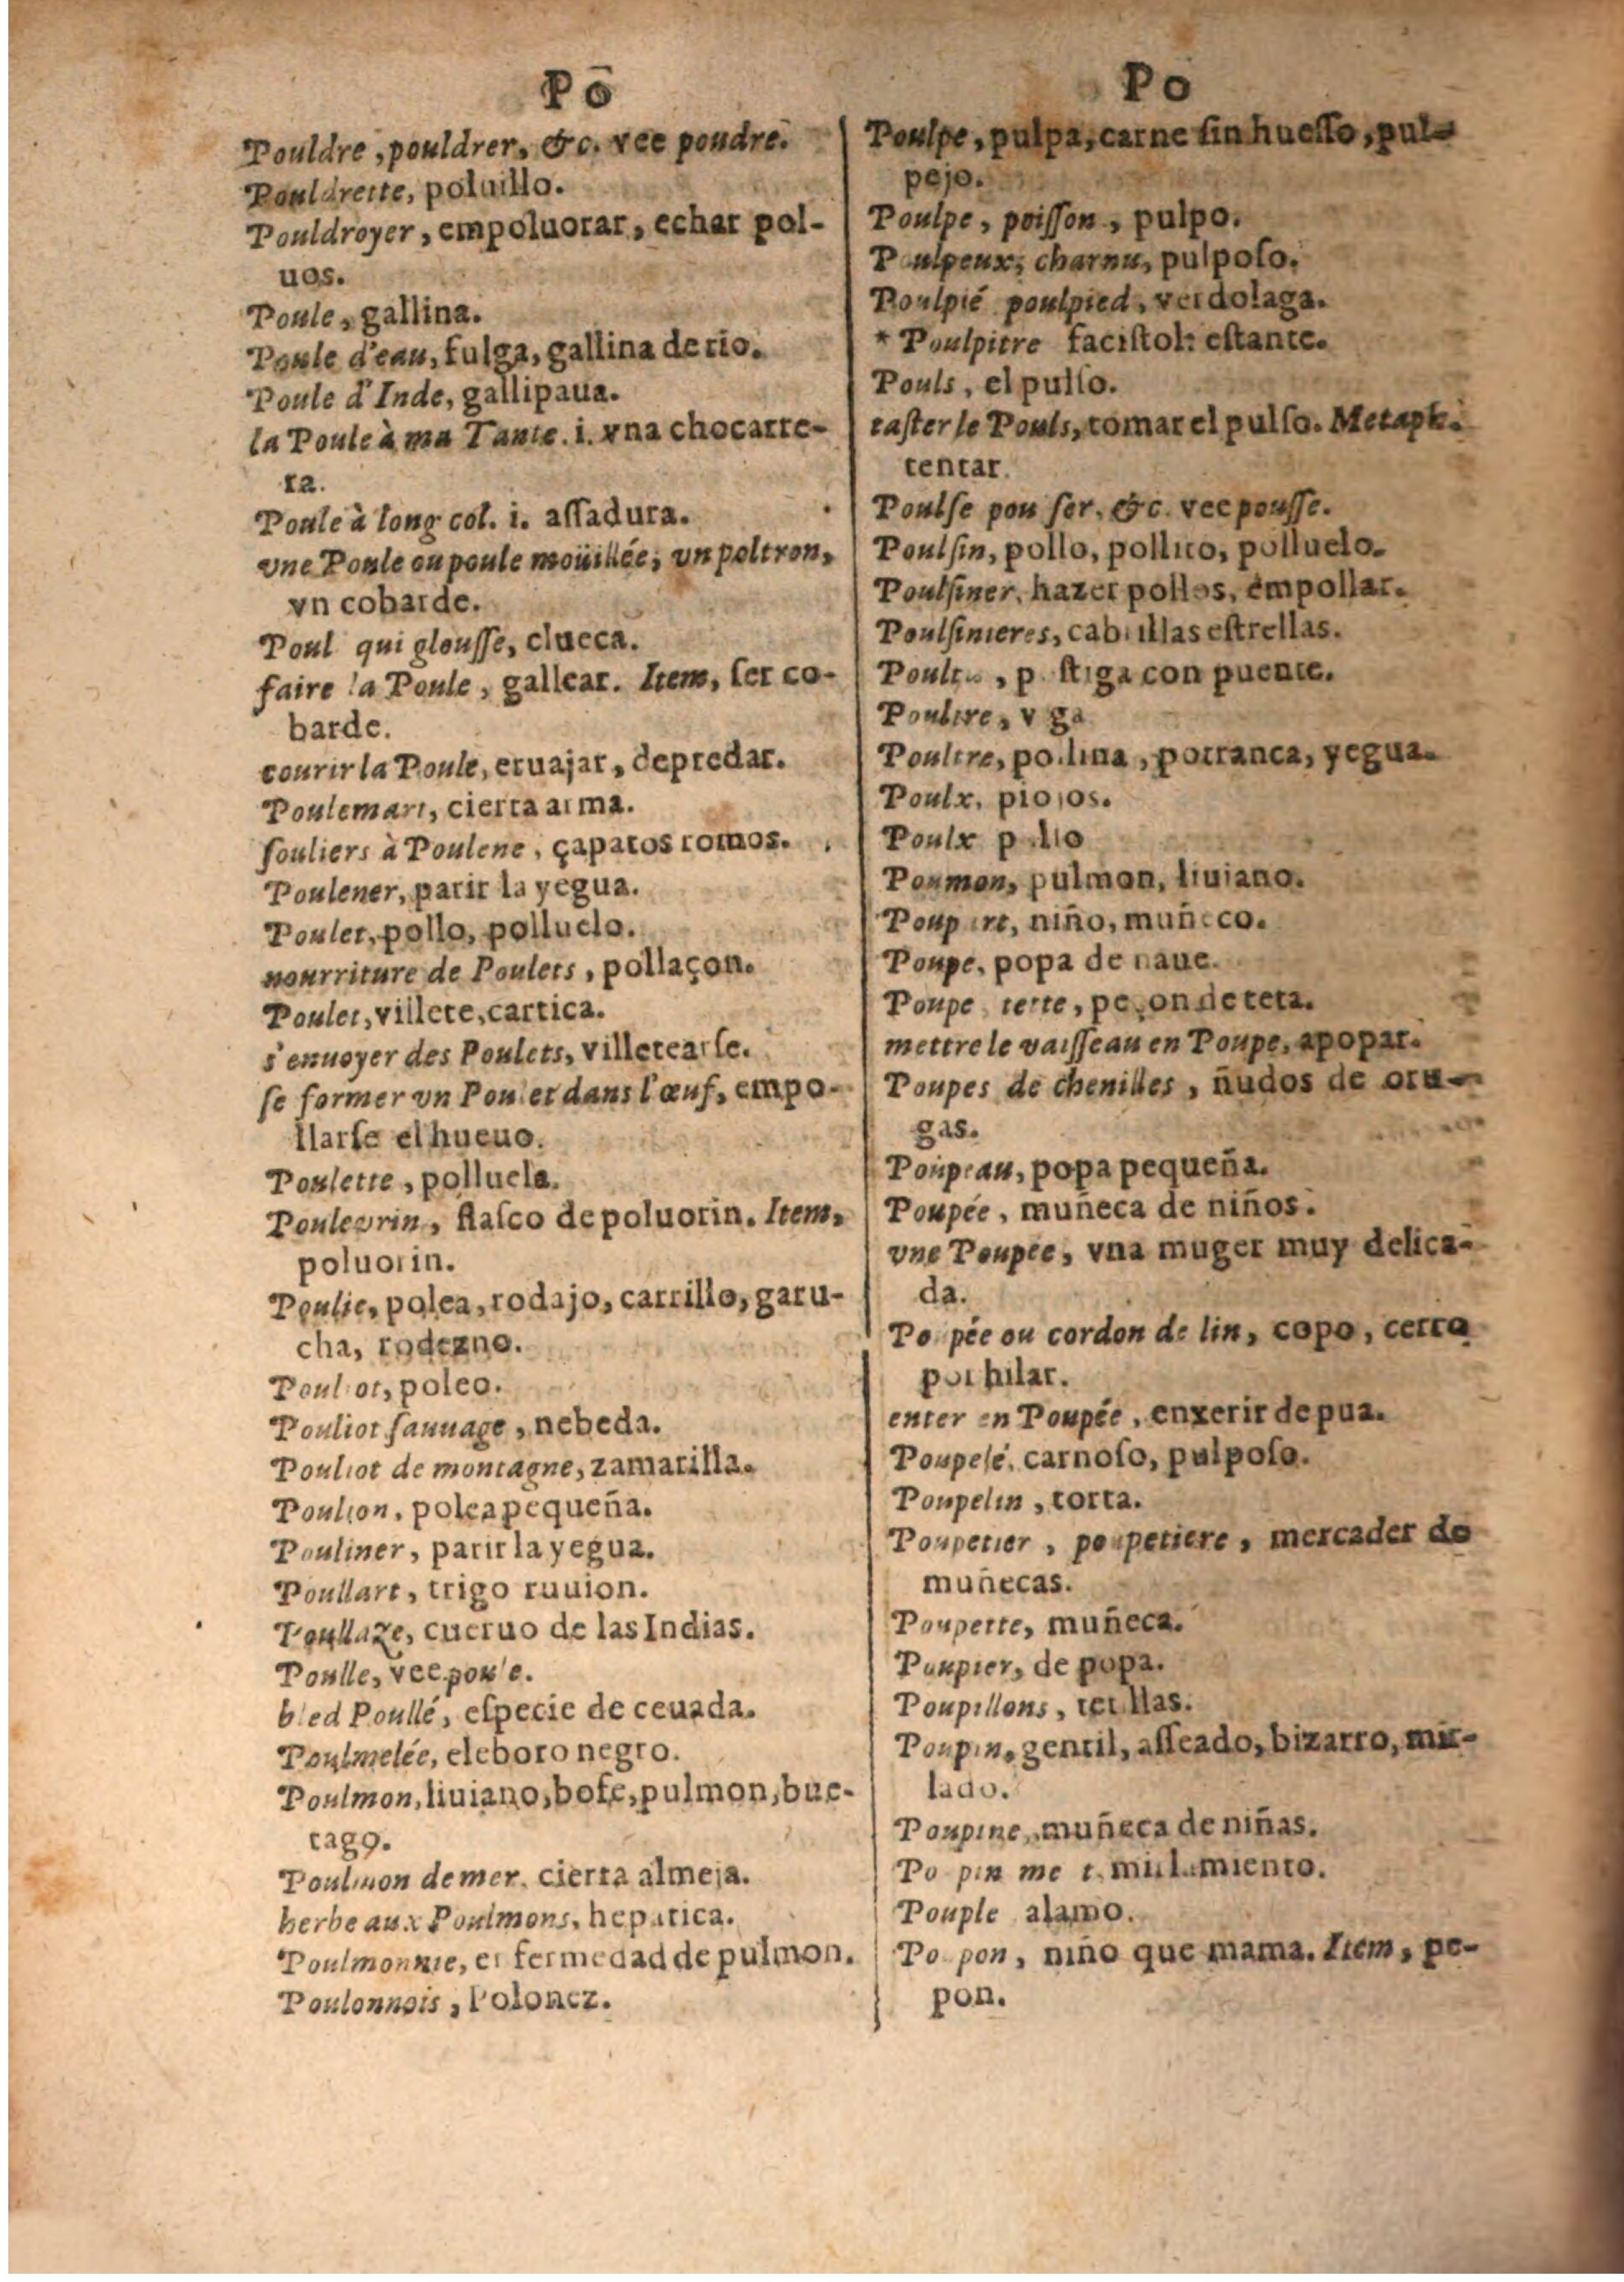 Po
Pouldre, pouldrer, &c. vee poudre.
Pouldrette, poluillo.
Pouldroyer, empoluorar, echar pol-
uos.
Poule, gallina.
Poule d'eau, fulga, gallina de rio.
Poule d'Inde, gallipaua.
la Poule à ma Tante. i. vna chocarre-
ra.
Poule à long col. i. aſſadura.
vne Poule ou poule moüillée, vn poltron,
vn cobarde.
Poul qui glouſſe, clueca.
faire la Poule, gallear. Item, ſer co-
barde.
courir la Poule, eruajar, depredar.
Poulemart, cierta arma.
ſouliers à Poulene, çapatos romos.
Poulener, parir la yegua.
Poulet, pollo, polluelo.
nourriture de Poulets, pollaçon.
Poulet, villete, cartica.
s'enuoyer des Poulets, villetearſe.
ſe former vn Poulet dans l'œuf, empo-
llarſe el hueuo.
Poulette, polluela.
Pouleurin, flaſco de poluorin. Item,
poluorin.
Poulie, polea, rodajo, carrillo, garu-
cha, rodezno.
Pouliot, poleo.
Pouliot ſauuage, nebeda.
Pouliot de montagne, zamarilla.
Poulion, polea pequeña.
Pouliner, parir la yegua.
Poullart, trigo ruuion.
Poullaze, cueruo de las Indias.
Poulle, vee poule.
bled Poullé, eſpecie de ceuada.
Poulmelée, eleboro negro.
Poulmon, liuiano, bofe, pulmon, bue-
tago.
Poulmon de mer, cierta almeja.
herbe aux Poulmons, hepatica.
Poulmonnie, enfermedad de pulmon.
Poulonnois, Polonez.
Po
Poulpe, pulpa, carne ſin hueſſo, pul-
pejo.
Poulpe, poiſſon, pulpo.
Poulpeux, charnu, pulpoſo.
Poulpié poulpied, verdolaga.
* Poulpitre faciſtol: eſtante.
Pouls, el pulſo.
taſter le Pouls, tomar el pulſo. Metaph.
tentar.
Poulſe pouſer, &c. vee pouſſe.
Poulſin, pollo, pollito, polluelo.
Poulſiner, hazer pollos, empollar.
Poulſinieres, cabrillas eſtrellas.
, poſtiga con puente.
Poultre, viga
Poultre, pollina, potranca, yegua.
Poulx, piojos.
Poulx pullo
Poumon, pulmon, liuiano.
Poupart, niño, muñeco.
Poupe, popa de naue.
Poupe tette, peçon de teta.
mettre le vaiſſeau en Poupe, apopar.
Poupes de chenilles, ñudos de oru-
gas.
Poupeau, popa pequeña.
Poupée, muñeca de niños.
vne Poupée, vna muger muy delica-
da.
Poupée ou cordon de lin, copo, cerro
por hilar.
enter en Poupée, enxerir de pua.
Poupelé, carnoſo, pulpoſo.
Poupelin, torta.
Poupetier, poupetiere, mercader de
muñecas.
Poupette, muñeca.
Poupier, de popa.
Poupillons, tetillas.
Poupin, gentil, aſſeado, bizarro, mir-
lado.
Poupine, muñeca de niñas.
Poupinment, mirlamiento.
Pouple alamo.
Poupon, niño que mama. Item, pe-
pon.